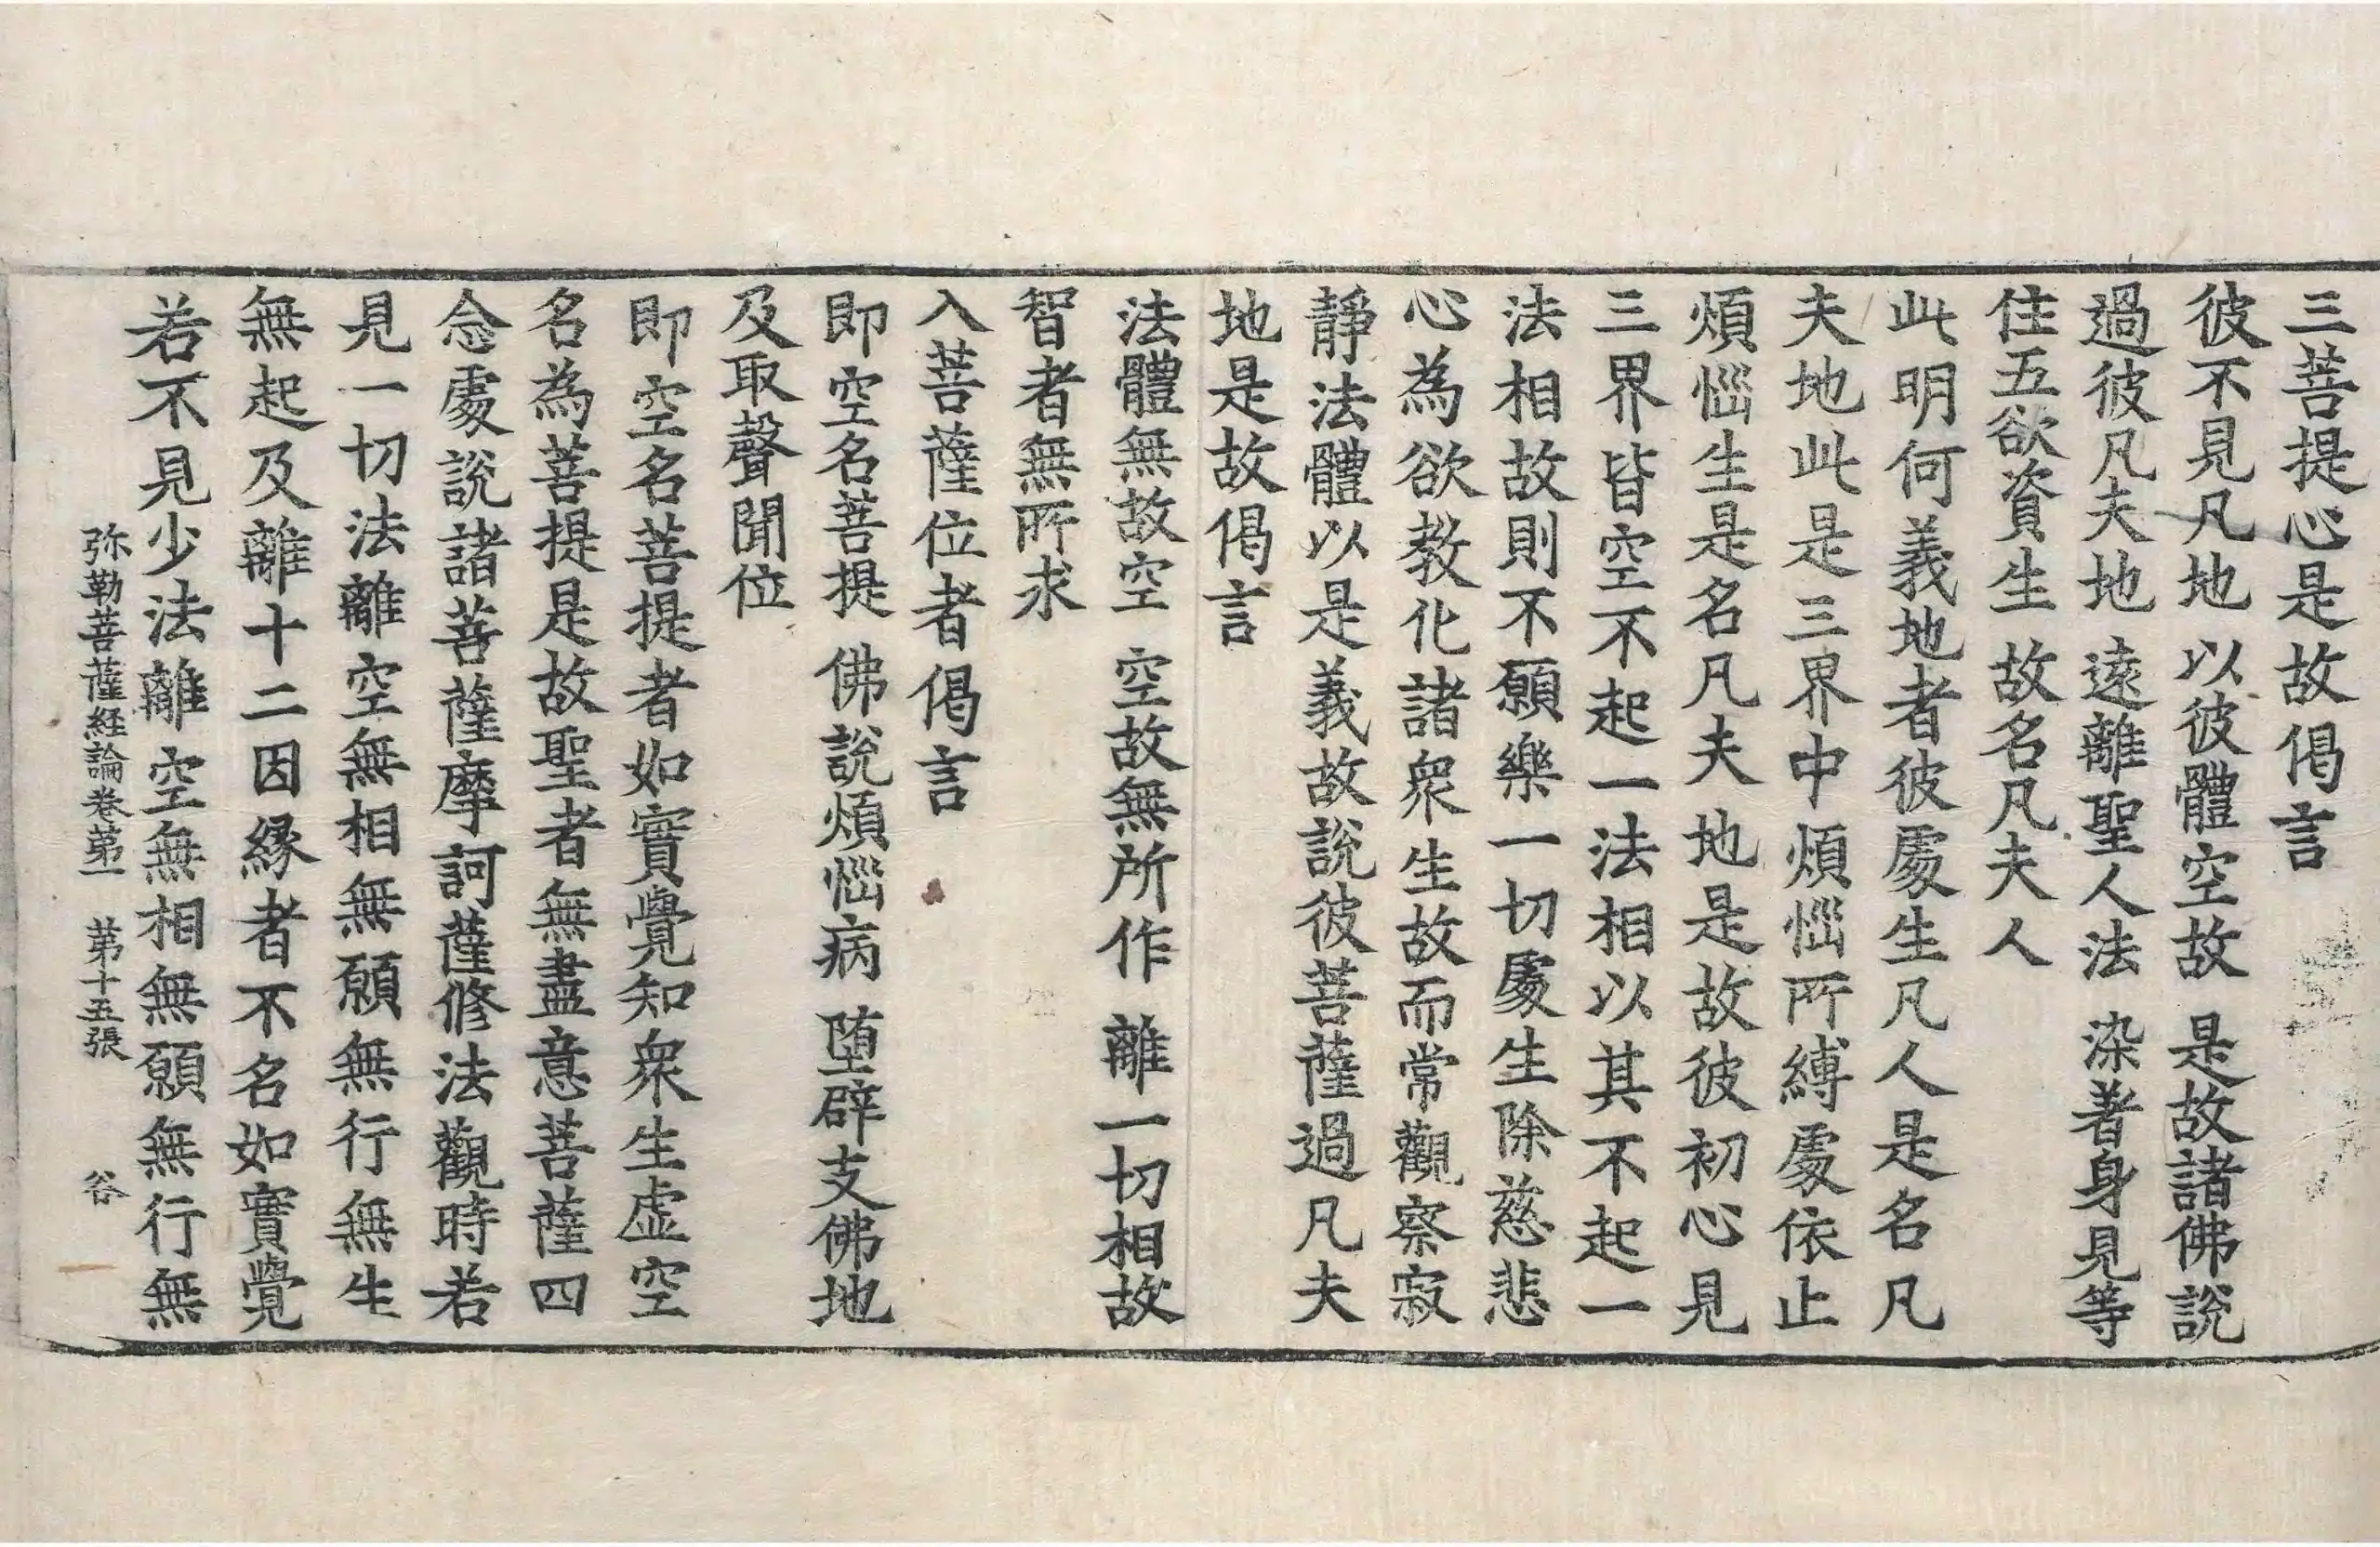 三菩提心是故偈言
彼不見凡地 以彼體空故 是故諸佛說
過彼凡夫地 遠離聖人法 染著身見等
住五欲資生 故名凡夫人
此明何義地者彼處生凡人是名凡
夫地此是三界中煩惱所縛處依止
煩惱生是名凡夫地是故彼初心見
三界皆空不起一法相以其不起一
法相故則不願樂一切處生除慈悲
心為欲教化諸衆生故而常觀察寂
靜法體以是義故說彼菩薩過凡夫
地是故偈言
法體無故空 空故無所作 離一切相故
智者無所求
入菩薩位者偈言
即空名菩提 佛說煩惱病 堕辟支佛地
及取聲聞位
即空名菩提者如實覺知衆生虛空
名為菩提是故聖者無盡意菩薩四
念處說諸菩薩摩訶薩修法觀時若
見一切法離空無相無願無行無生
無起及離十二因緣者不名如實覺
若不見少法離空無相無願無行無
弥勒菩薩経論卷苐一 苐十五張 谷